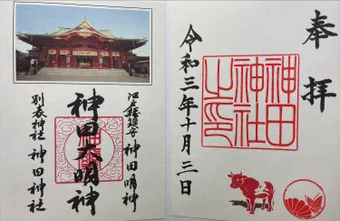 奉拝
神田神社之印
令和三年十月三日
江戸総鎮守 神田明神
神田大明神
別表神社 神田神社